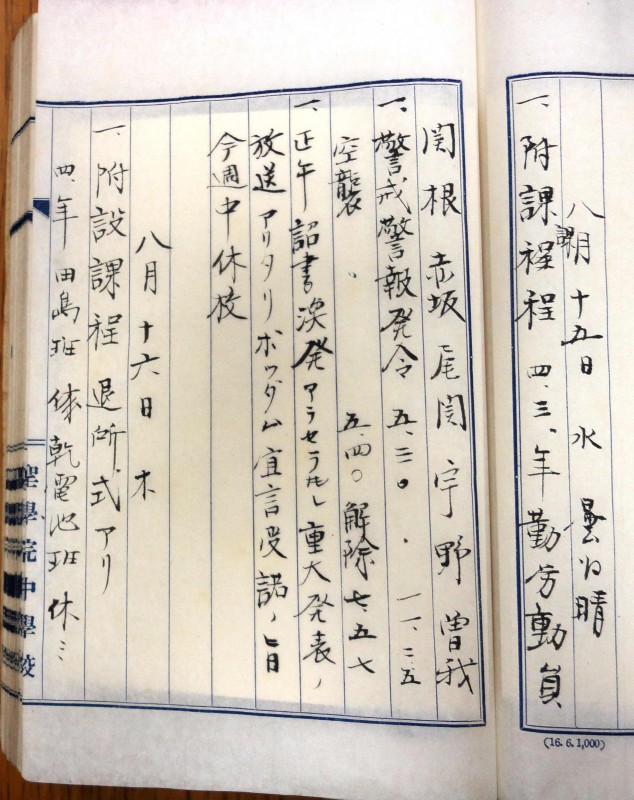 八月十五日 水 曇のち晴
一、附課程 四、三、年勤労動員
(16. 6. 1,000)
関根 赤坂 尾関 宇野 曽我
一、警戒警報発令 五、二〇、一一、二五
空襲、五、四〇 解除 七、五七
一、正午詔書渙発アラセラル 重大発表ノ
放送アリタリ ポツダム宣言受諾ノ旨
今週中休校
八月十六日 木
一、附設課程退所式アリ
四、年田島班休 乾電池班休
聖學院中學校